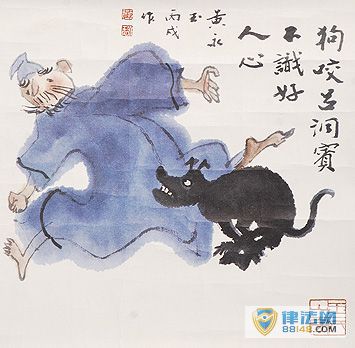 狗咬吕洞宾
不識好
人心
黄永
玉
丙戌
作
律法网
88148.COM